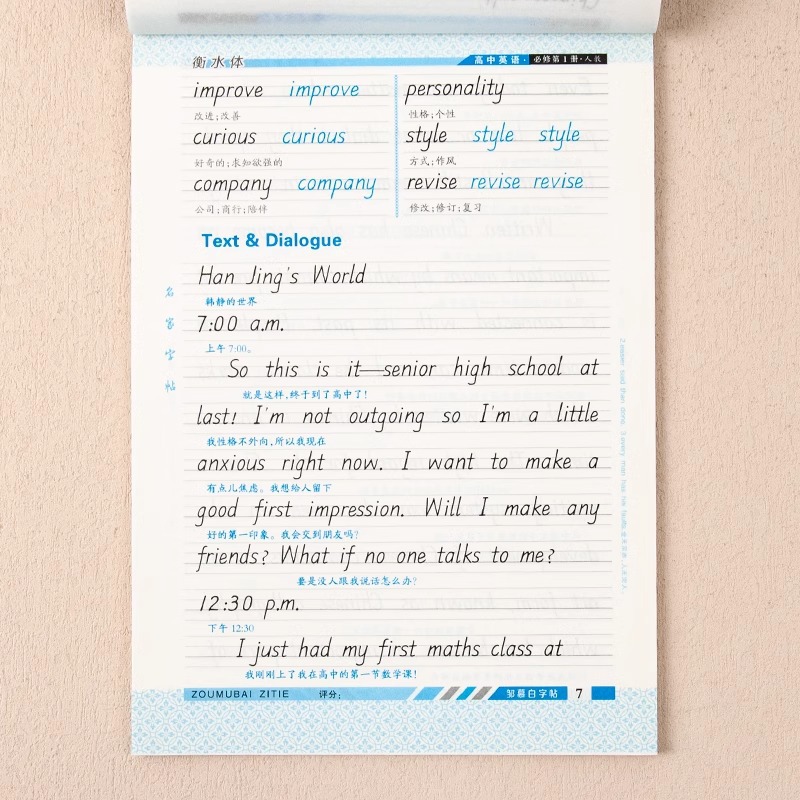 衡水体
高中英语·必修第1册·人教
improve improve
改进;改善
personality
性格;个性
curious curious
好奇的;求知欲强的
style style style
方式;作风
company company
公司;商行;陪伴
revise revise revise
修改;修订;复习
Text & Dialogue
Han Jing's World
韩静的世界
7:00 a.m.
上午 7:00。
So this is it—senior high school at
就是这样,终于到了高中了!
last! I'm not outgoing so I'm a little
我性格不外向,所以我现在
anxious right now. I want to make a
有点儿焦虑。我想给人留下
good first impression. Will I make any
好的第一印象。我会交到朋友吗?
friends? What if no one talks to me?
要是没人跟我说话怎么办?
12:30 p.m.
下午 12:30
I just had my first maths class at
我刚刚上了我在高中的第一节数学课!
名家字帖
ZOUMUBAI ZITIE 评分:
邹慕白字帖 7